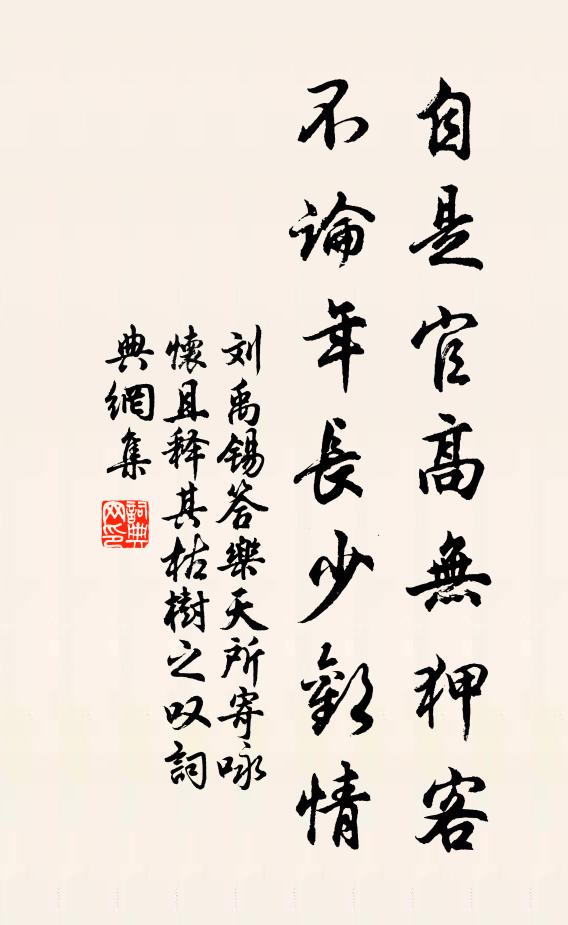 自是官高無狎客
不論年長少歡情
刘禹锡答樂天所寄咏
懷且释其枯樹之叹詞
典網集
詞典
网印